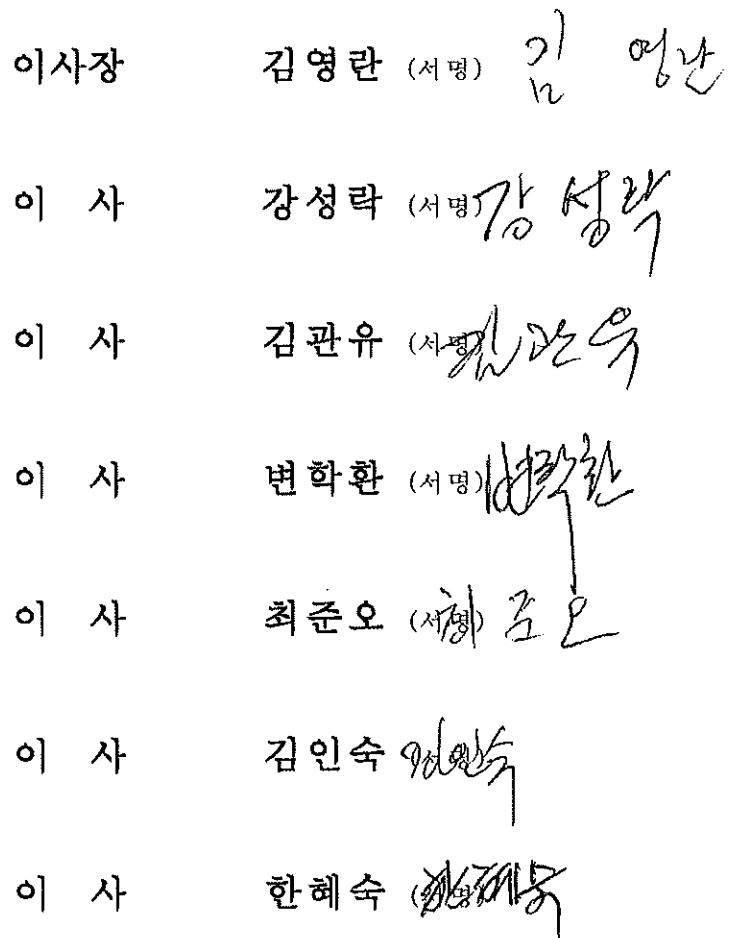 이사장 김영란 (서명) 김 영란
이 사 강성락 (서명) 강 성락
이 사 김관유 (서명) 김관유
이 사 변학환 (서명) 변학환
이 사 최준오 (서명) 최준오
이 사 김인숙 (서명) 김인숙
이 사 한혜숙 (서명) 한혜숙